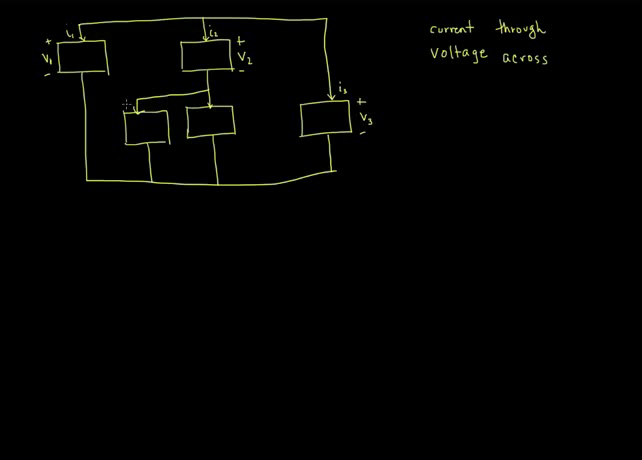 i₁
+
V₁
-
i₂
+
V₂
-
i₃
+
V₃
-
current through
Voltage across